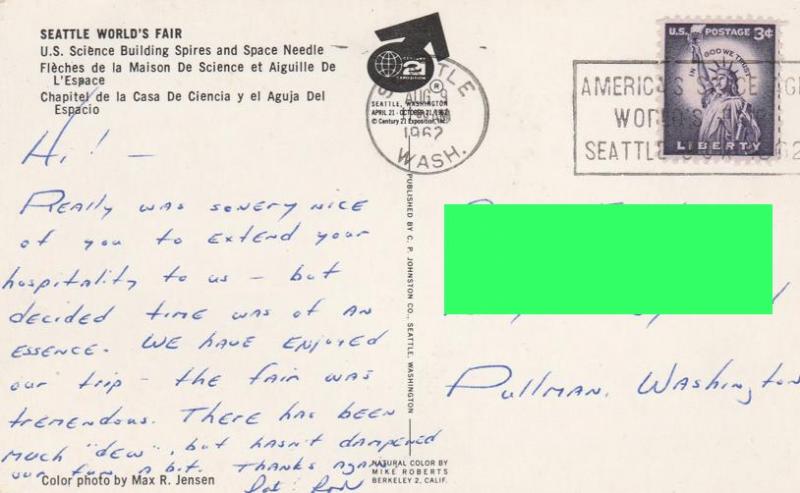 SEATTLE WORLD'S FAIR
U.S. Science Building Spires and Space Needle
Flèches de la Maison De Science et Aiguille De
L'Espace
Chapitel de la Casa De Ciencia y el Aguja Del
Espacio
CENTURY
21
EXPOSITION
SEATTLE, WASHINGTON
APRIL 21 - OCTOBER 21, 1962
© Century 21 Exposition, Inc.
SEATTLE
AUG 9
1962
WASH.
U.S. POSTAGE 3¢
IN GOD WE TRUST
LIBERTY
AMERICA'S SPACE AGE
WORLD'S
SEATTLE 1962
Hi! -
Really was so very nice
of you to extend your
hospitality to us - but
decided time was of an
essence. We have enjoyed
our trip - the fair was
tremendous. There has been
much "dew", but hasn't dampened
our fun a bit. Thanks again
Pullman, Washington
PUBLISHED BY C. P. JOHNSTON CO., SEATTLE, WASHINGTON
Color photo by Max R. Jensen
NATURAL COLOR BY
MIKE ROBERTS
BERKELEY 2, CALIF.